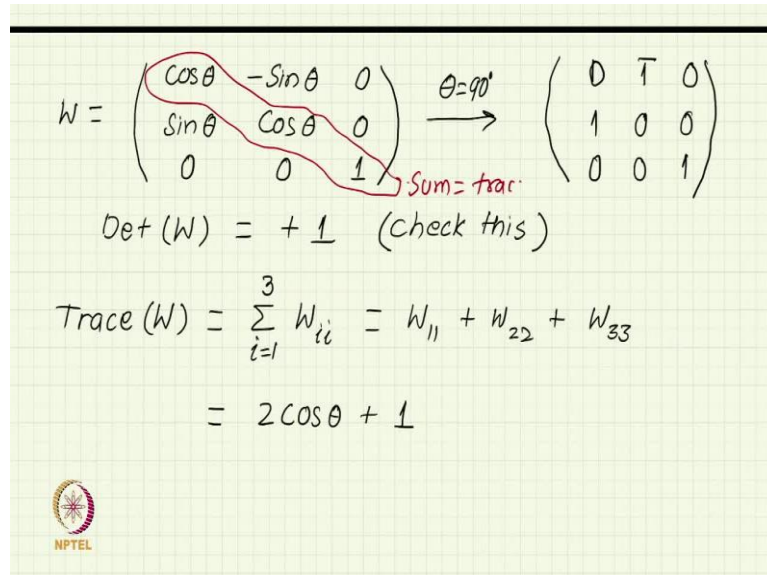 W = ( Cosθ -Sinθ 0 ) θ=90° → ( 0 1̅ 0 )
( Sinθ Cosθ 0 ) ( 1 0 0 )
( 0 0 1 ) Sum= trac. ( 0 0 1 )
Det (W) = + 1 (Check this)
Trace (W) = ∑_{i=1}^{3} W_{ii} = W_{11} + W_{22} + W_{33}
= 2 Cosθ + 1
NPTEL